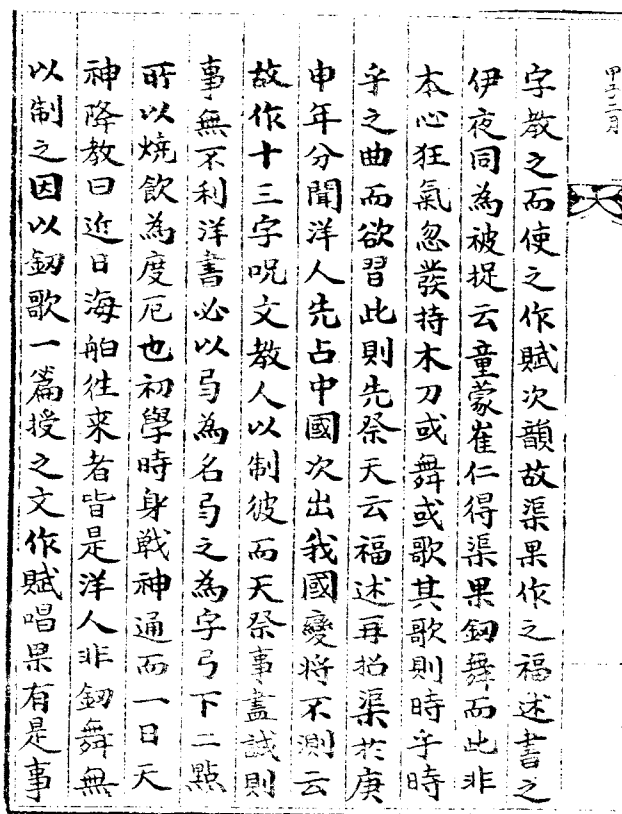 甲子二月
字教之而使之作賦次韻故渠果作之福述書之
伊夜同為被捉云童蒙崔仁得渠果釰舞而此非
本心狂氣忽發持木刀或舞或歌其歌則時乎時
乎之曲而欲習此則先祭天云福述再招渠於庚
申年分聞洋人先占中國次出我國變將不測云
故作十三字呪文教人以制彼而天祭事盡誠則
事無不利洋書必以弓為名弓之為字弓下二點
所以燒飲為度厄也初學時身戰神通而一日天
神降教曰近日海舶往来者皆是洋人非釰舞無
以制之因以釰歌一篇授之文作賦唱果有是事